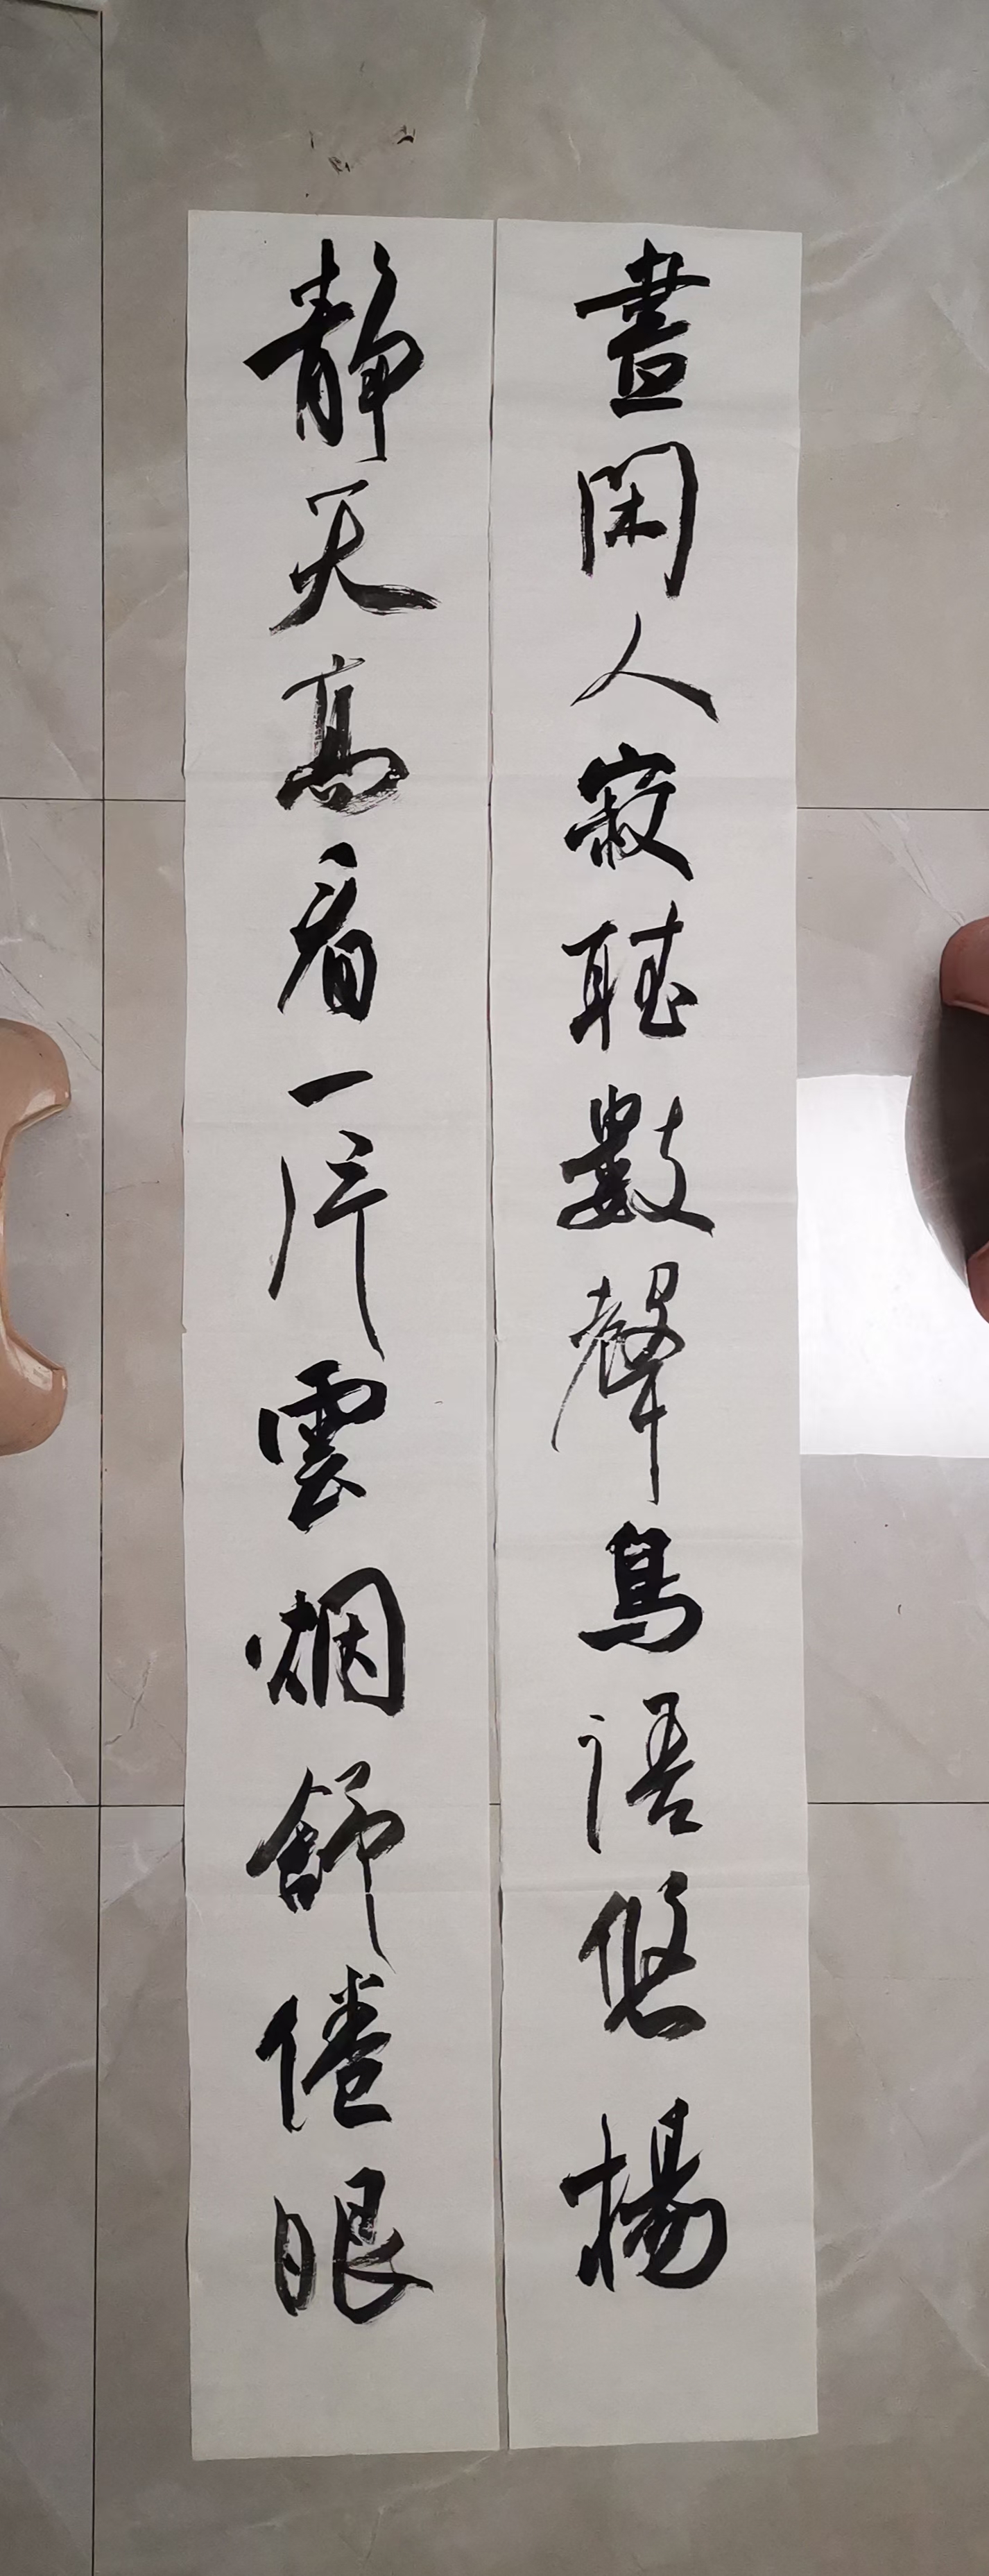 晝閑人寂聽數聲鳥語悠揚
静天高看一片雲烟舒倦眼